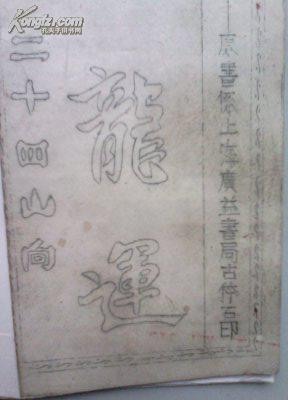 Kongfz.com
孔夫子旧书网
原書係上海廣益書局古本石印
龍運
二十四山向